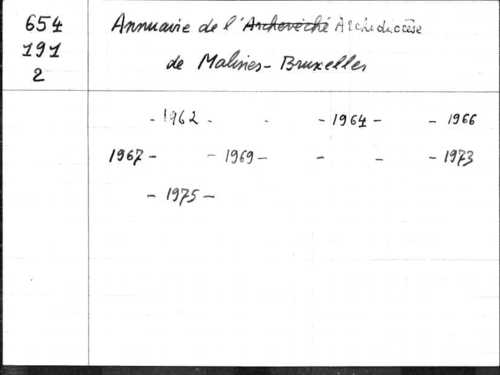 654 Annuaire de l'Archevêché Archidiocèse
191 de Malines-Bruxelles
2
- 1962 - - - 1964 - - 1966
1967 - - 1969 - - - - 1973
- 1975 -